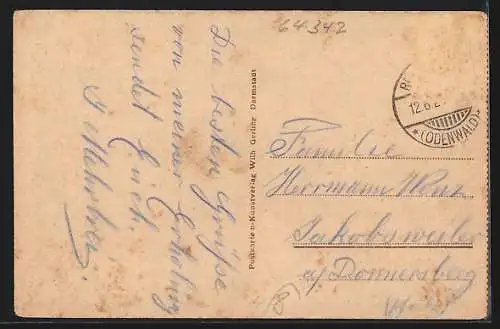 64342
Die besten Grüße
von meiner Erholung
sendet Euch
Postkarte u-Kunstverlag Wilh Gerling Darmstadt
12.6.2
*(ODENWALD)*
Familie
Herrmann
Jakobsweiler
a/ Donnersberg
(8)